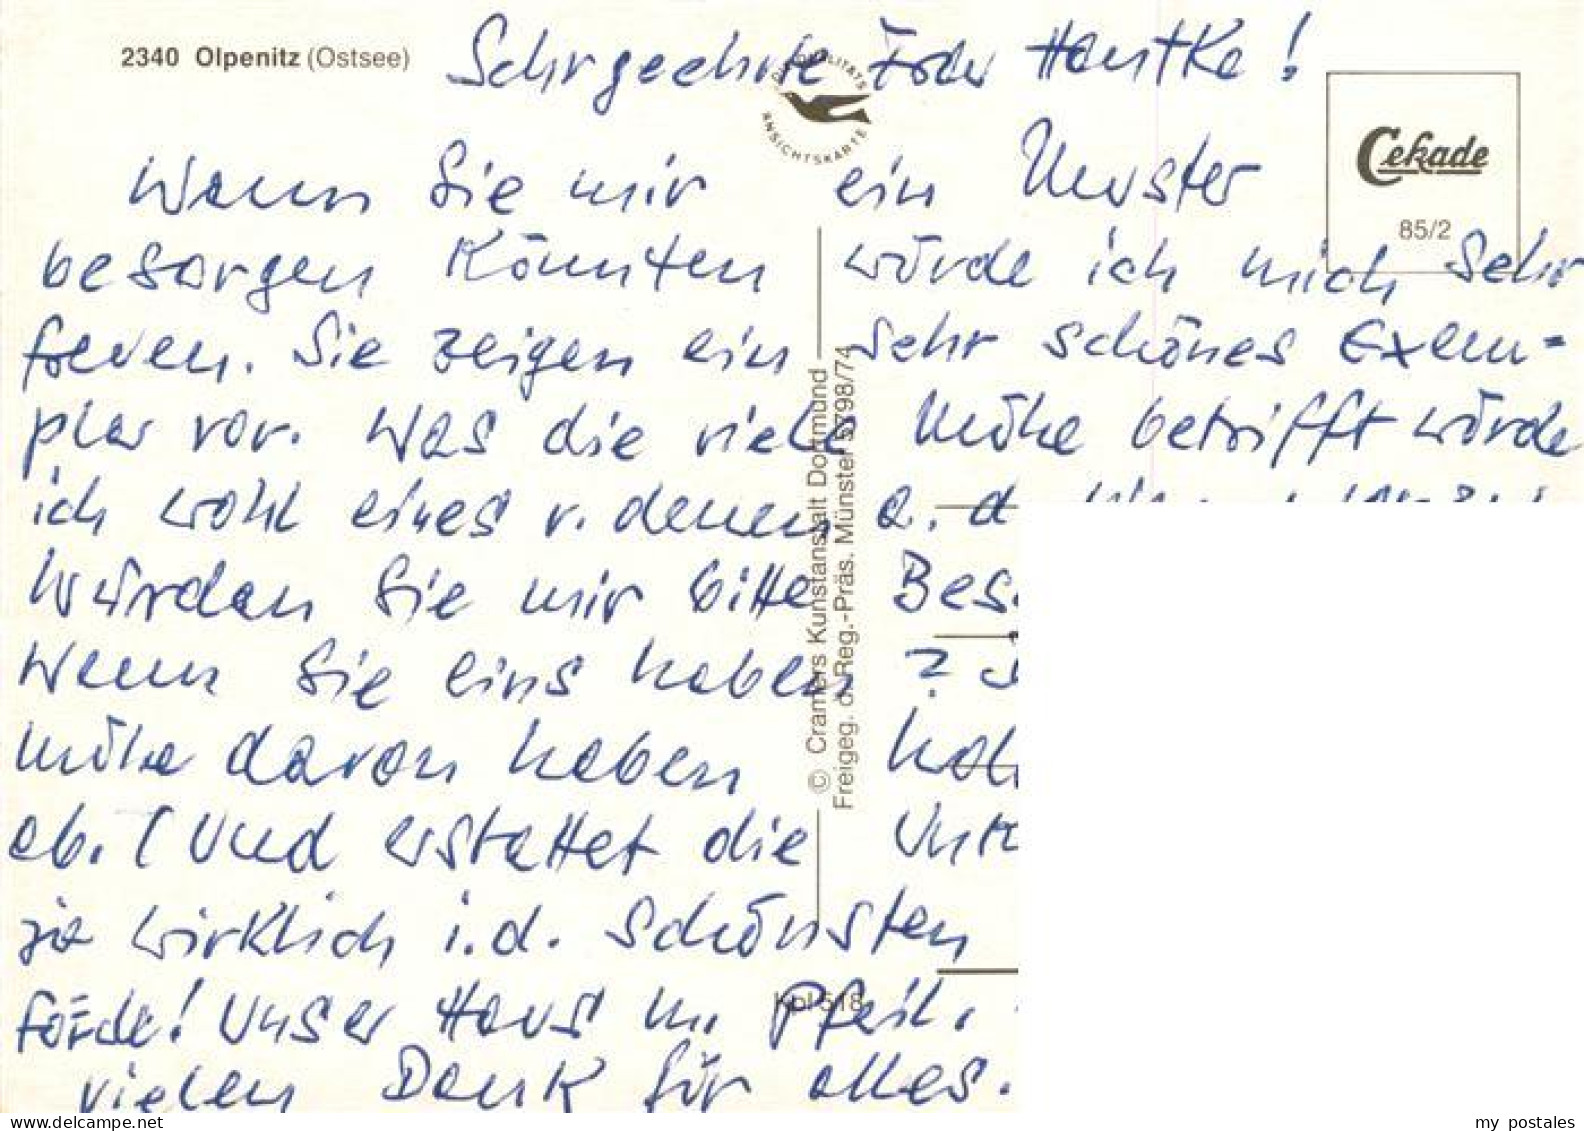 2340 Olpenitz (Ostsee)
Sehrgeehrte Frau Hantke!
QUALITÄTS
ANSICHTSKARTE
Cekade
85/2
Wenn Sie mir ein Muster
besorgen könnten würde ich mich sehr
freuen. Sie zeigen ein sehr schönes Exem-
plar vor. Was die viele Mühe betrifft würde
ich wohl eines v. denen a. d
Würden Sie mir bitte Bes
Wenn Sie eins haben ?
Mühe davon haben
ab. (Und erstattet die
ja wirklich i.d. schönsten
förde! Unser Haus m. Pfeil.
vielen Dank für alles.
© Cramers Kunstanstalt Dortmund
Freigeg. d. Reg.-Präs. Münster 5798/74
Kpl 518
my postales
www.delcampe.net